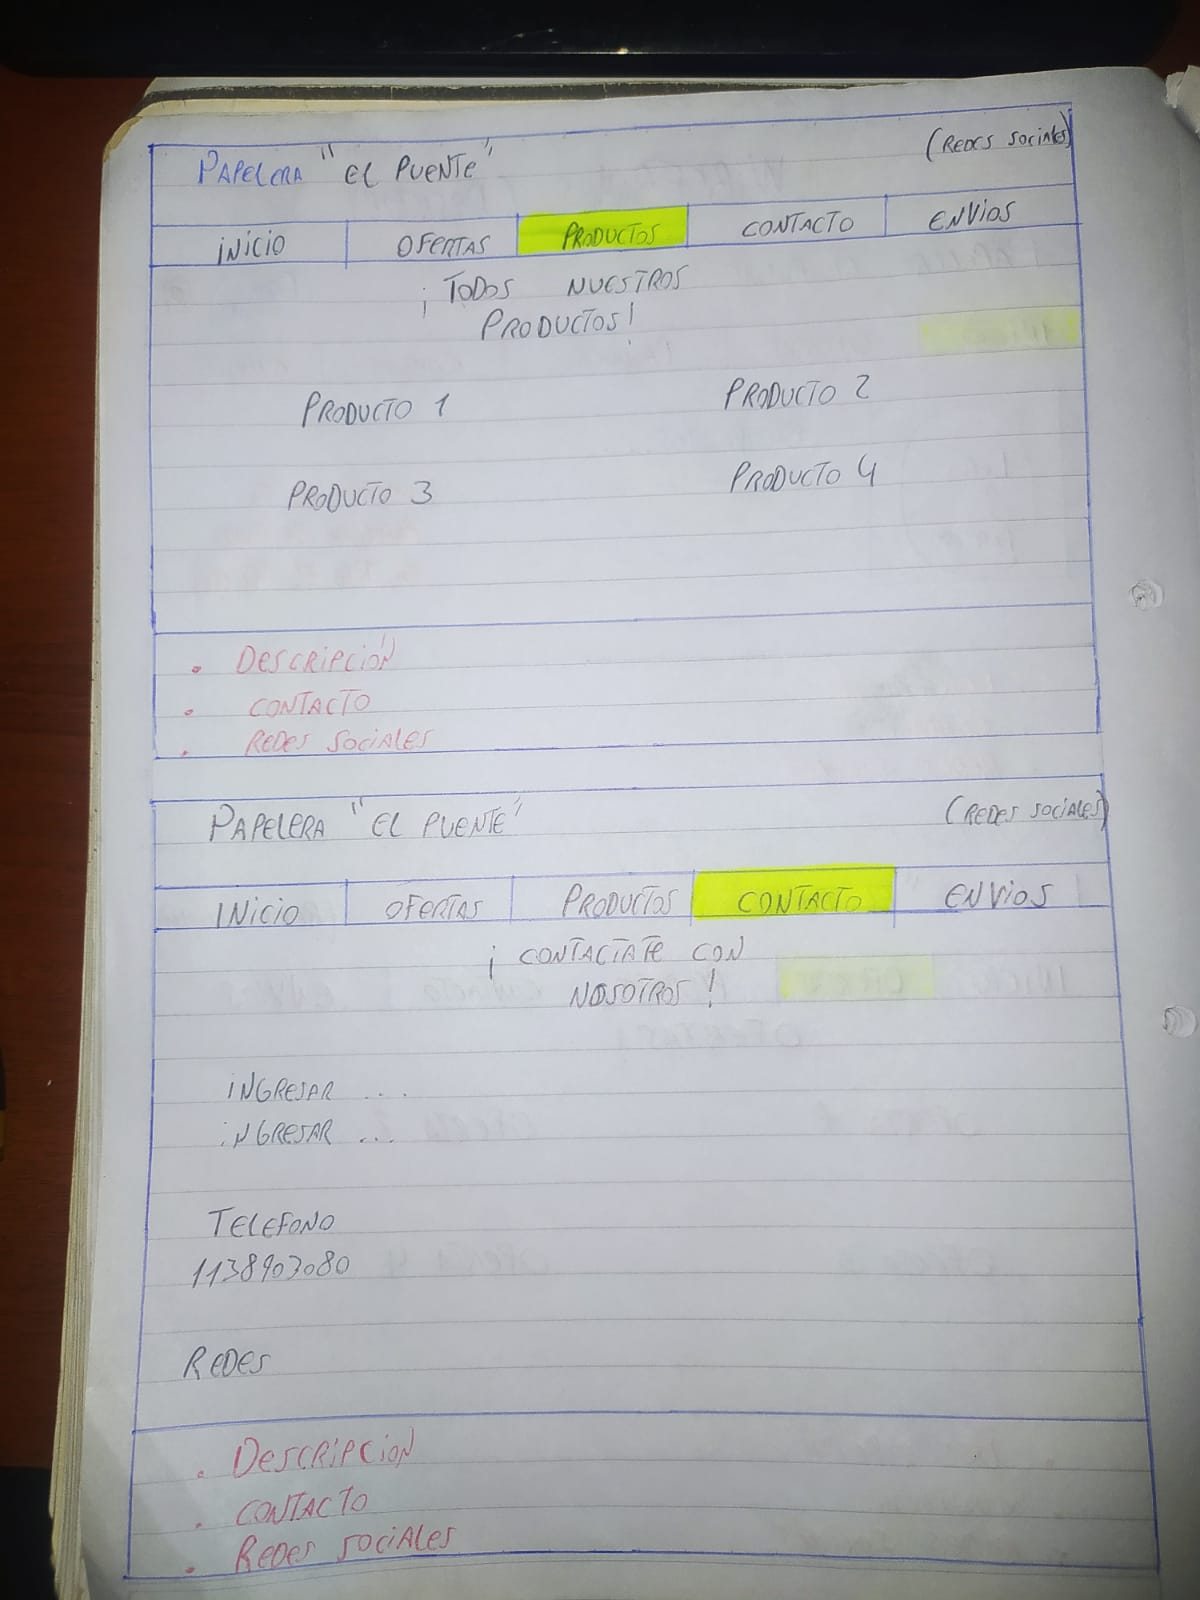 PAPELERA "EL PUENTE" (REDES SOCIALES)
INICIO OFERTAS PRODUCTOS CONTACTO ENVIOS
¡TODOS NUESTROS
PRODUCTOS!
PRODUCTO 1 PRODUCTO 2
PRODUCTO 3 PRODUCTO 4
• DESCRIPCIÓN
• CONTACTO
• REDES SOCIALES
PAPELERA "EL PUENTE" (REDES SOCIALES)
INICIO OFERTAS PRODUCTOS CONTACTO ENVIOS
¡CONTACTATE CON
NOSOTROS!
INGRESAR ...
INGRESAR ...
TELEFONO
1138903080
REDES
• DESCRIPCION
• CONTACTO
• REDES SOCIALES